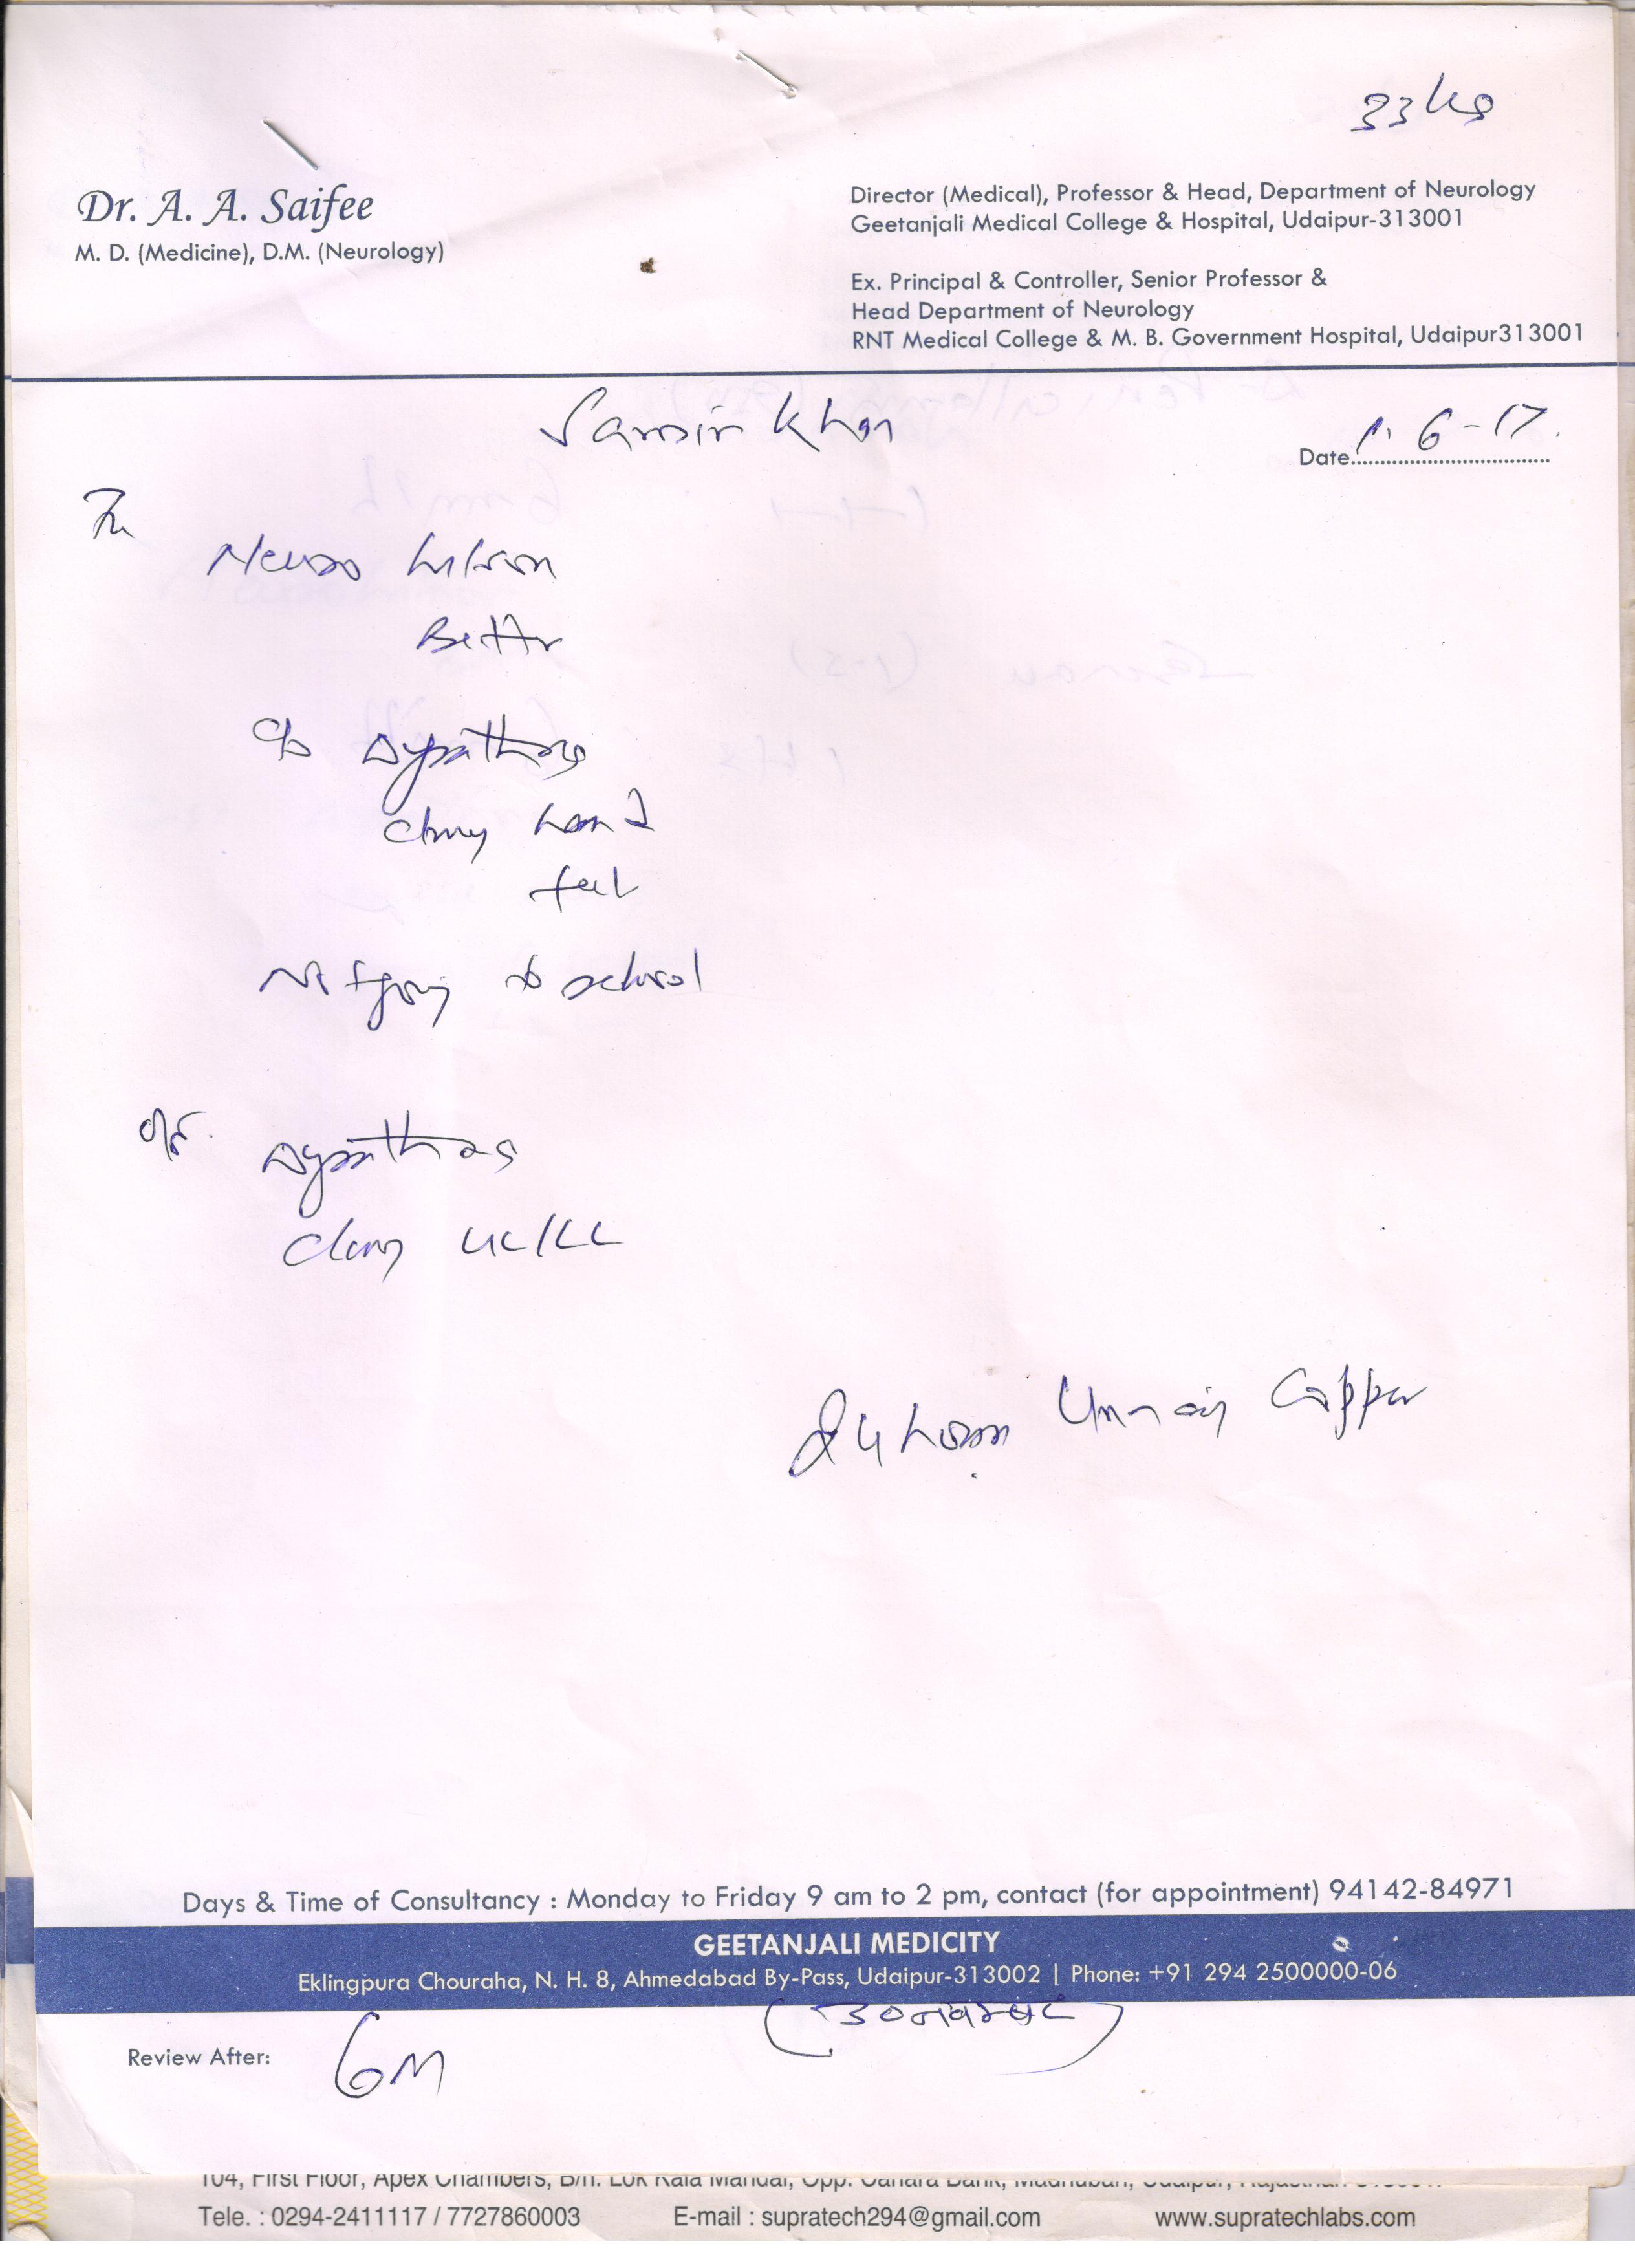 33 kg
Dr. A. A. Saifee
M. D. (Medicine), D.M. (Neurology)
Director (Medical), Professor & Head, Department of Neurology
Geetanjali Medical College & Hospital, Udaipur-313001
Ex. Principal & Controller, Senior Professor &
Head Department of Neurology
RNT Medical College & M. B. Government Hospital, Udaipur313001
Khan
Date 1. 6-17.
Neuro Wilson
Better
c/o Dysathria
Clumsy hand
feet
Not going to school
o/e.
Clumsy UL/LL
24 hours Urinary Copper
Days & Time of Consultancy : Monday to Friday 9 am to 2 pm, contact (for appointment) 94142-84971
GEETANJALI MEDICITY
Eklingpura Chouraha, N. H. 8, Ahmedabad By-Pass, Udaipur-313002 | Phone: +91 294 2500000-06
Review After: 6M
104, First Floor, Apex Chambers, B/h. Lok Kala Mandal, Opp. Canara Bank, Madhuban, Udaipur,
Tele. : 0294-2411117 / 7727860003 E-mail : supratech294@gmail.com www.supratechlabs.com